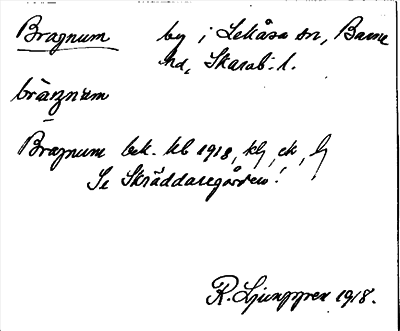 Bragnum by i Lekåsa sn, Barne
hd, Skarab. l.
bràŋnùm
Bragnum bek. kb 1918, kf, ck, lj
Se Skräddaregården!
R. Ljunggren 1918.